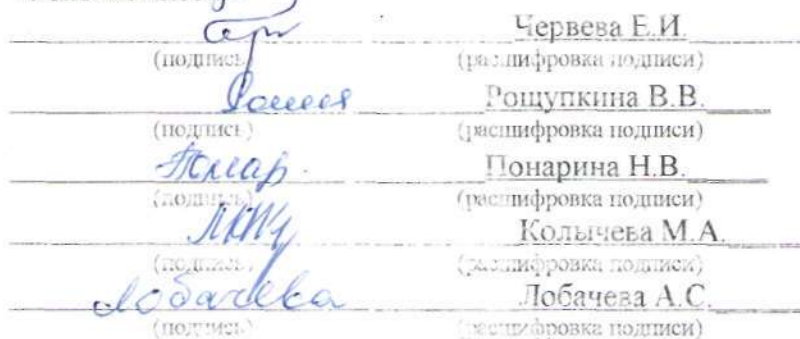 Червева Е.И.
(подпись) (расшифровка подписи)
Рощупкина В.В.
(подпись) (расшифровка подписи)
Понарина Н.В.
(подпись) (расшифровка подписи)
Колычева М.А.
(подпись) (расшифровка подписи)
Лобачева Лобачева А.С.
(подпись) (расшифровка подписи)